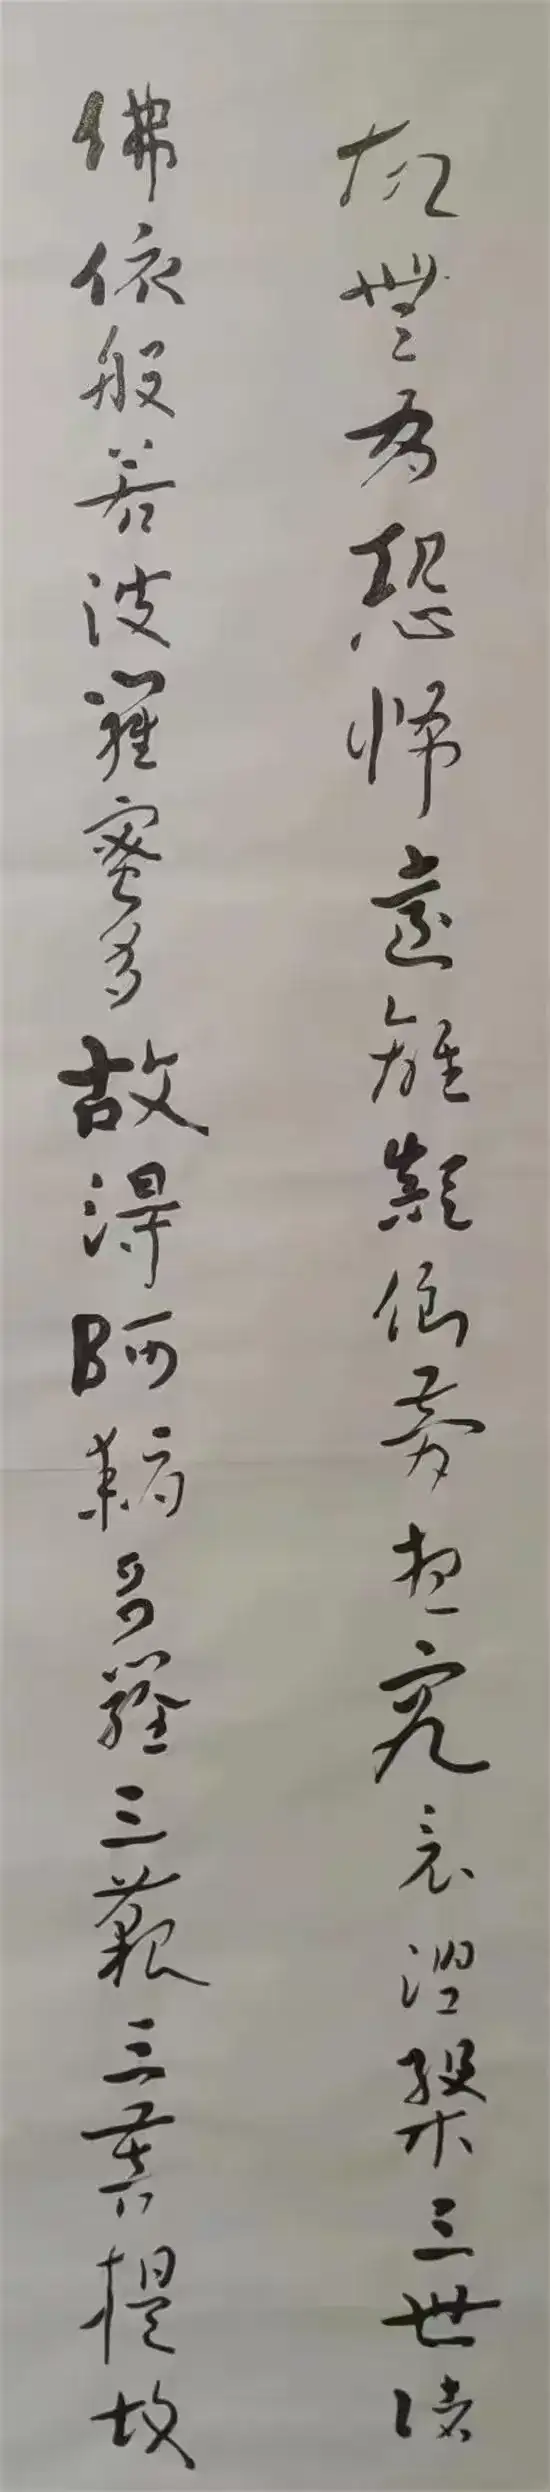 故無有恐怖遠離顛倒夢想究竟涅槃三世諸
佛依般若波羅蜜多故得阿耨多羅三藐三菩提故